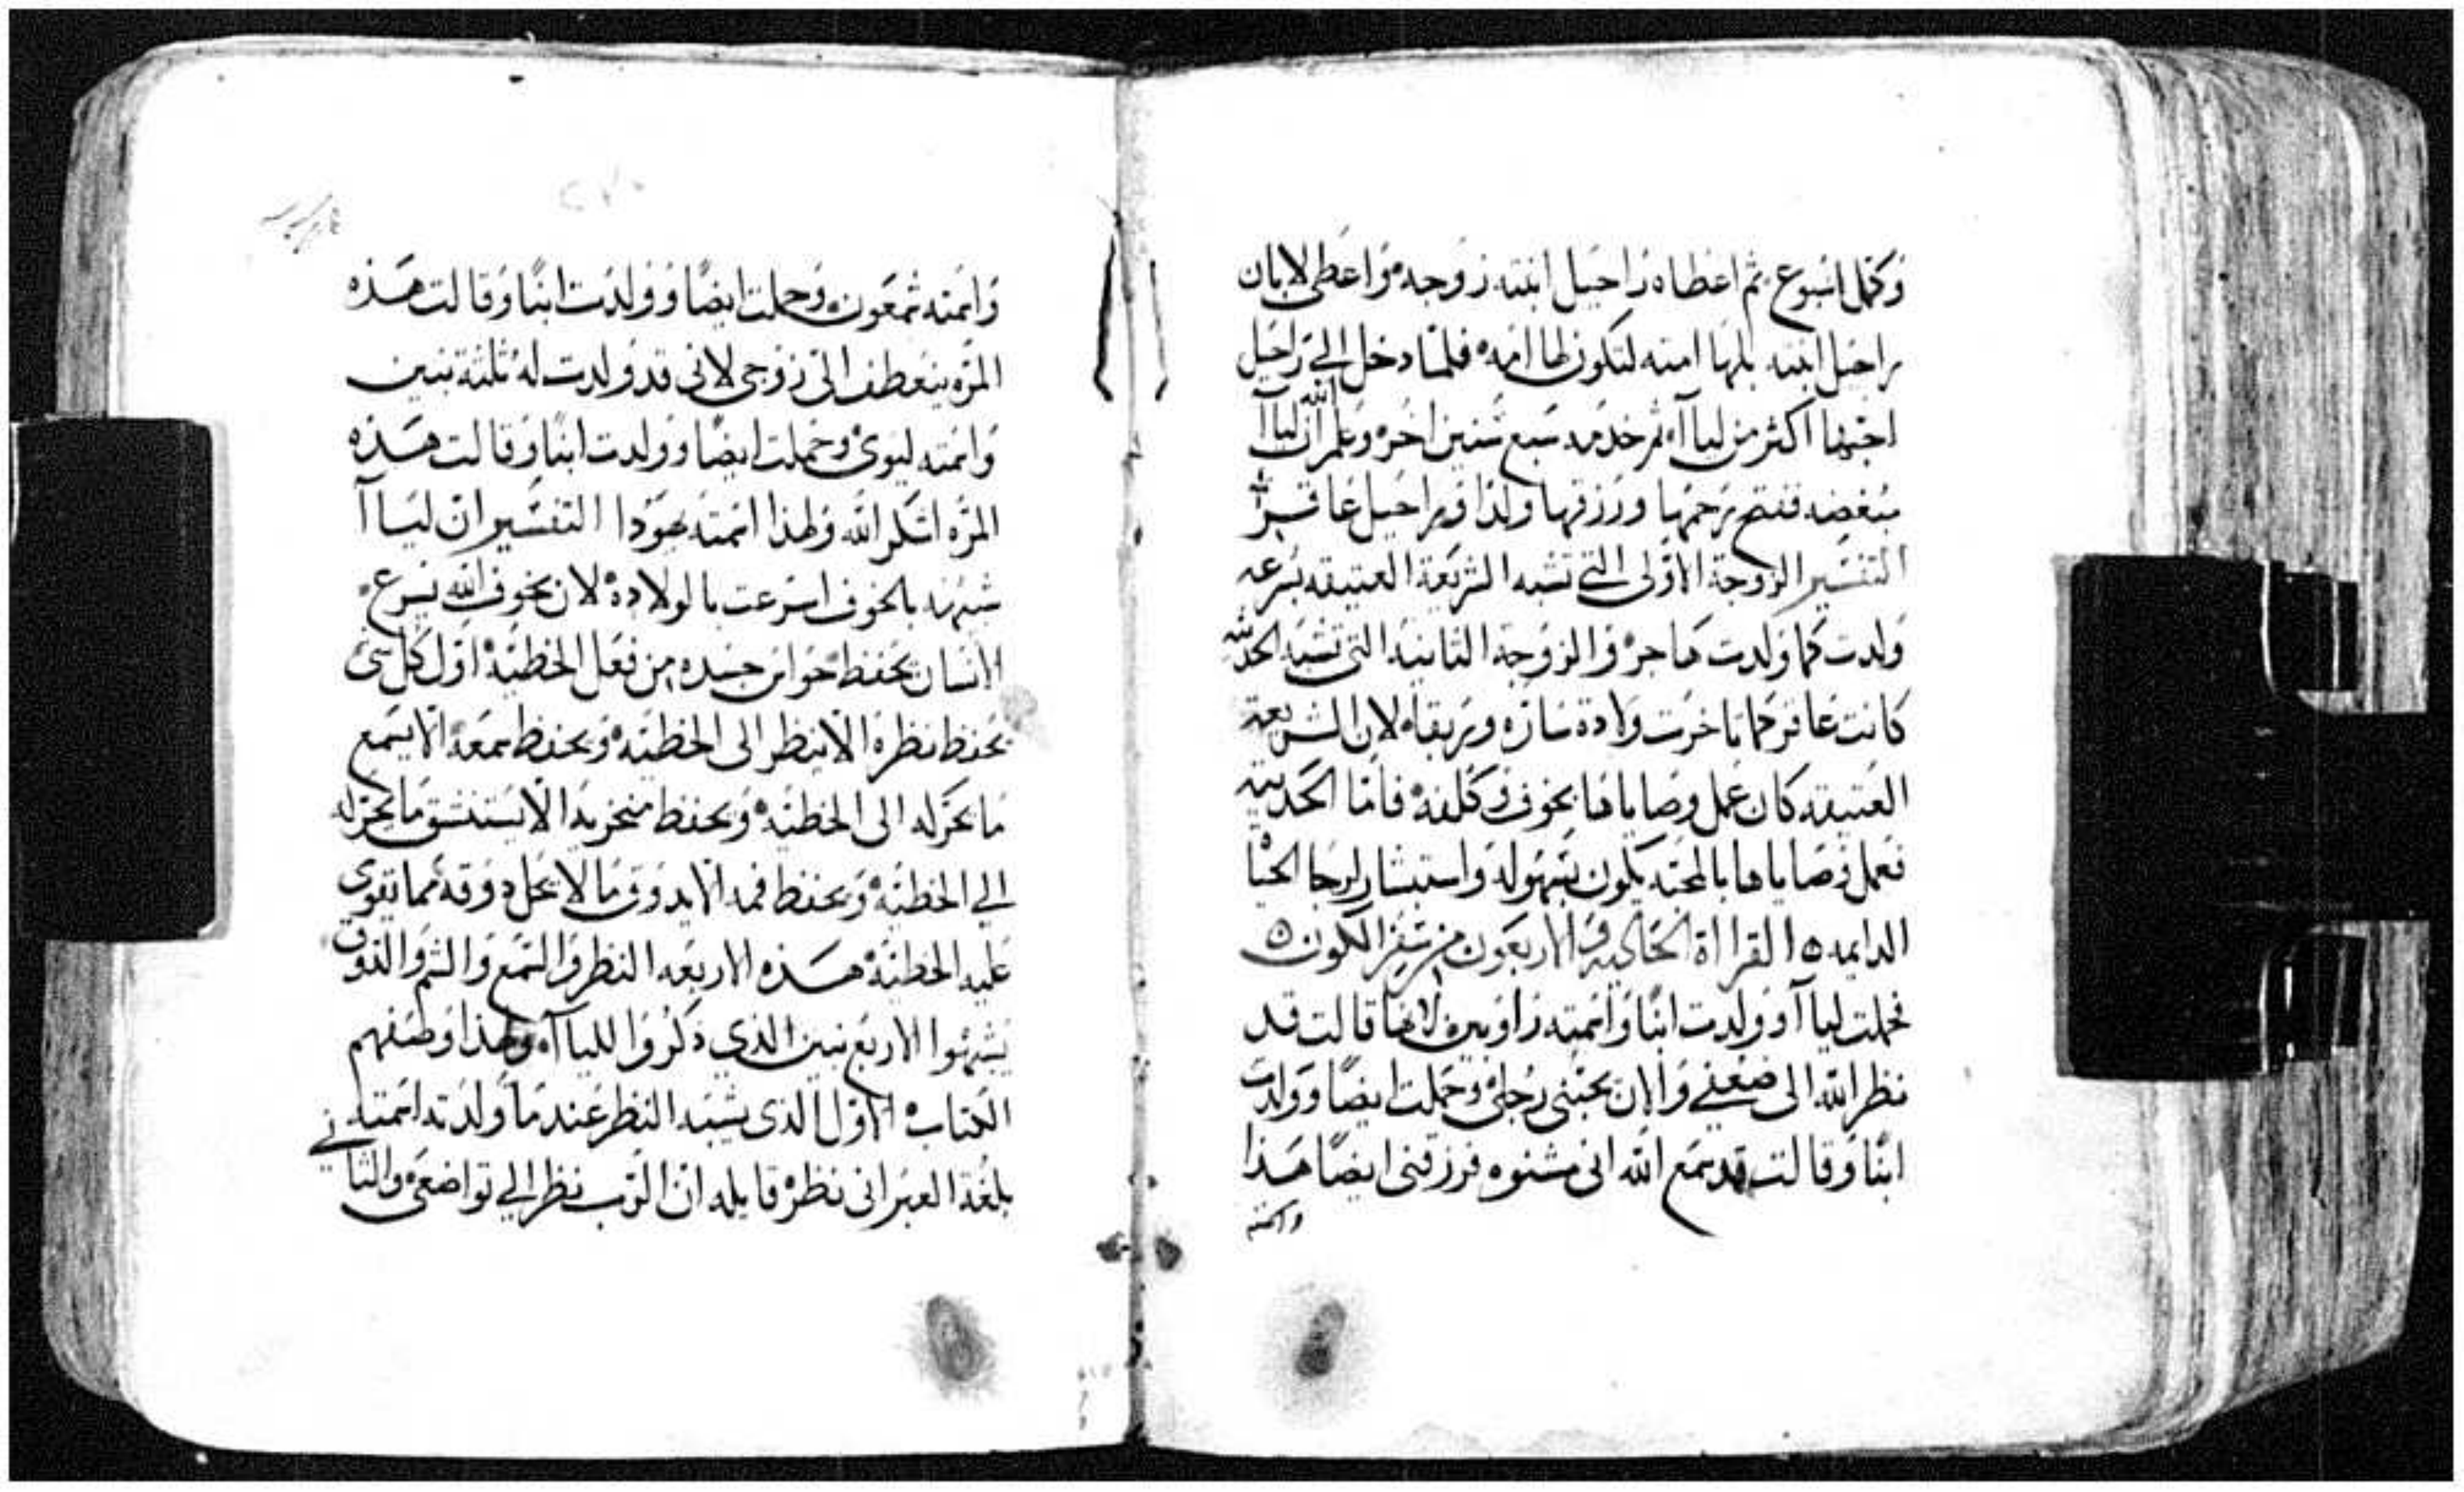 وكمل اسبوع ثم اعطاه راحيل ابنته زوجه واعطى لابان
راحيل ابنته بلها امته لتكون لها امه فلما دخل الي راحيل
احبها اكثر من لياآ ثم خدمه سبع سنين اخر وعلم الله ان لياآ
مبغضه ففتح رحمها ورزقها ولدا وراحيل عاقرا
التفسير الزوجة الاولى التي تشبه الشريعة العتيقه بسرعه
ولدت كما ولدت هاجر والزوجة الثانية التي تشبه الحديثه
كانت عاقر كما تاخرت ولادة ساره وربقاه لان الشريعة
العتيقه كان عمل وصاياها بخوف وكلفه فاما الحديثه
فعمل وصاياها بالمحبه يكون بسهوله واستبشار لرجا الحياه
الدايمه القرااة الحاديه والاربعون من سفر الكون
فحملت لياآ وولدت ابنا واسمته راوبين لانها قالت قد
نظر الله الى ضعفي والان يحبني رجلي وحملت ايضا وولدت
ابنا وقالت قد سمع الله اني مشنوه فرزقني ايضا هذا
واسمته
واسمته شمعون وحملت ايضا وولدت ابنا وقالت هذه
المره ينعطف الى زوجي لاني قد ولدت له ثلثة بنين
واسمته ليوى وحملت ايضا وولدت ابنا وقالت هذه
المره اشكر الله ولهذا اسمته يهودا التفسير ان لياآ
شبهت بالخوف اسرعت بالولاده لان بخوف الله يسرع
الانسان يحفظ حواس جسده من فعل الخطيه اول كل شي
يحفظ نظره الا ينظر الى الخطيه ويحفظ سمعه الا يسمع
ما يحركه الى الخطيه ويحفظ منخريه الا يستنشق ما يحركه
الي الخطيه ويحفظ فمه الا يدوق ما لا يحل دوقه مما تقوى
عليه الخطيه هذه الاربعه النظر والسمع والشم والذوق
يشبهوا الاربع بنين الذي ذكروا للياآ وهذا وصفهم
الكتاب الاول الذي يشبه النظر عندما ولدته اسمته
بلغة العبراني نظر قايله ان الرب نظر الي تواضعي والثاني